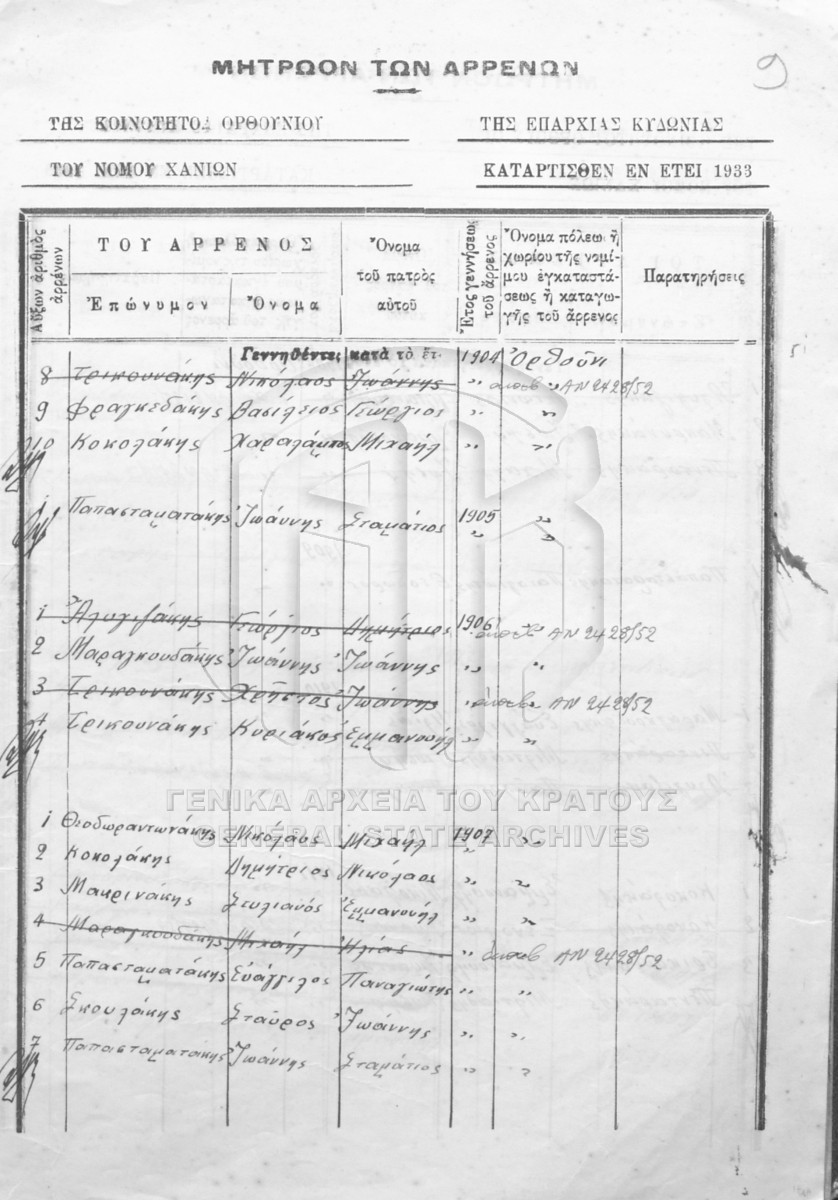 9
ΜΗΤΡΩΟΝ ΤΩΝ ΑΡΡΕΝΩΝ
ΤΗΣ ΚΟΙΝΟΤΗΤΟΣ ΟΡΘΟΥΝΙΟΥ ΤΗΣ ΕΠΑΡΧΙΑΣ ΚΥΔΩΝΙΑΣ
ΤΟΥ ΝΟΜΟΥ ΧΑΝΙΩΝ ΚΑΤΑΡΤΙΣΘΕΝ ΕΝ ΕΤΕΙ 1933
Αὔξων ἀριθμὸς ἀρρένων
ΤΟΥ ΑΡΡΕΝΟΣ
Ἐπώνυμον Ὄνομα
Ὄνομα
τοῦ πατρὸς
αὐτοῦ
Ἔτος γεννήσεως
τοῦ ἄρρενος
Ὄνομα πόλεως ἢ
χωρίου τῆς νομί-
μου ἐγκαταστά-
σεως ἢ καταγω-
γῆς τοῦ ἄρρενος
Παρατηρήσεις
Γεννηθέντες κατὰ τὸ ἔτ. 1904 Ὀρθοῦνι
8 Τρικουνάκης Νικόλαος Ἰωάννης " " ΑΝ 2428/52
9 Φραγκεδάκης Βασίλειος Γεώργιος " "
10 Κοκολάκης Χαραλάμπος Μιχαήλ " "
1 Παπασταματάκης Ἰωάννης Σταμάτιος 1905 "
" "
1 Ἀλυγιζάκης Γεώργιος Δημήτριος 1906 ΑΝ 2428/52
2 Μαραγκουδάκης Ἰωάννης Ἰωάννης " "
3 Τρικουνάκης Χρῆστος Ἰωάννης " ΑΝ 2428/52
4 Τρικουνάκης Κυριάκος Ἐμμανουήλ " "
1 Θεοδωραντωνάκης Νικόλαος Μιχαήλ 1907 "
2 Κοκολάκης Δημήτριος Νικόλαος " "
3 Μακρινάκης Στυλιανός Ἐμμανουήλ " "
4 Μαραγκουδάκης Μιχαήλ Ἠλίας " ΑΝ 2428/52
5 Παπασταματάκης Εὐάγγελος Παναγιώτης " "
6 Σκουλάκης Σταῦρος Ἰωάννης " "
7 Παπασταματάκης Ἰωάννης Σταμάτιος " "
ΓΕΝΙΚΑ ΑΡΧΕΙΑ ΤΟΥ ΚΡΑΤΟΥΣ
GENERAL STATE ARCHIVES